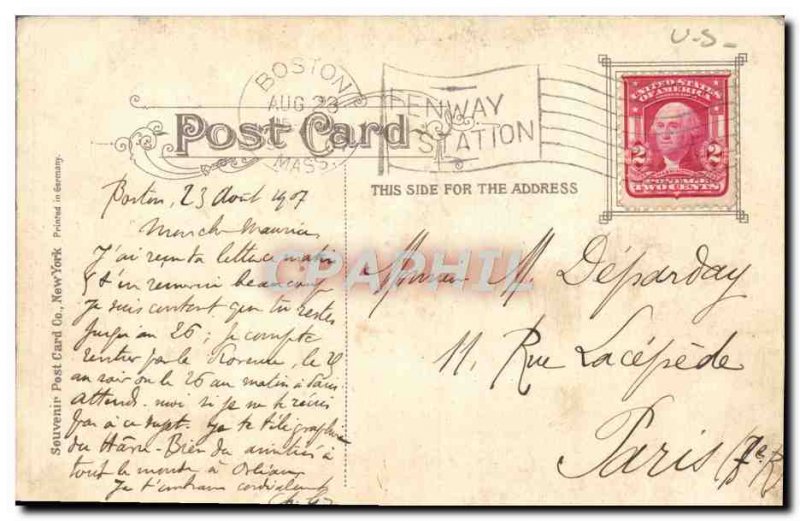 U.S.
BOSTON
AUG 23
MASS.
FENWAY
STATION
UNITED STATES
OF AMERICA
2 2
POSTAGE
TWO CENTS
Post Card
THIS SIDE FOR THE ADDRESS
Souvenir Post Card Co., New York Printed in Germany.
CPAPHIL
Boston, 23 Août 1907
Mon ch Maurice
J'ai reçu ta lettre ce matin
& t'en remercie beaucoup
Je suis content que tu restes
jusqu'au 26; je compte
rentrer par la Provence, le 25
au soir ou le 26 au matin à Paris
Attends-moi si je ne t'écris
pas à ce sujet. Je te télégraphie
du Havre - Bien du amitiés à
tout le monde à Orléans
Je t'embrasse cordialement
Monsieur M. Dépарday
11, Rue Lacépède
Paris